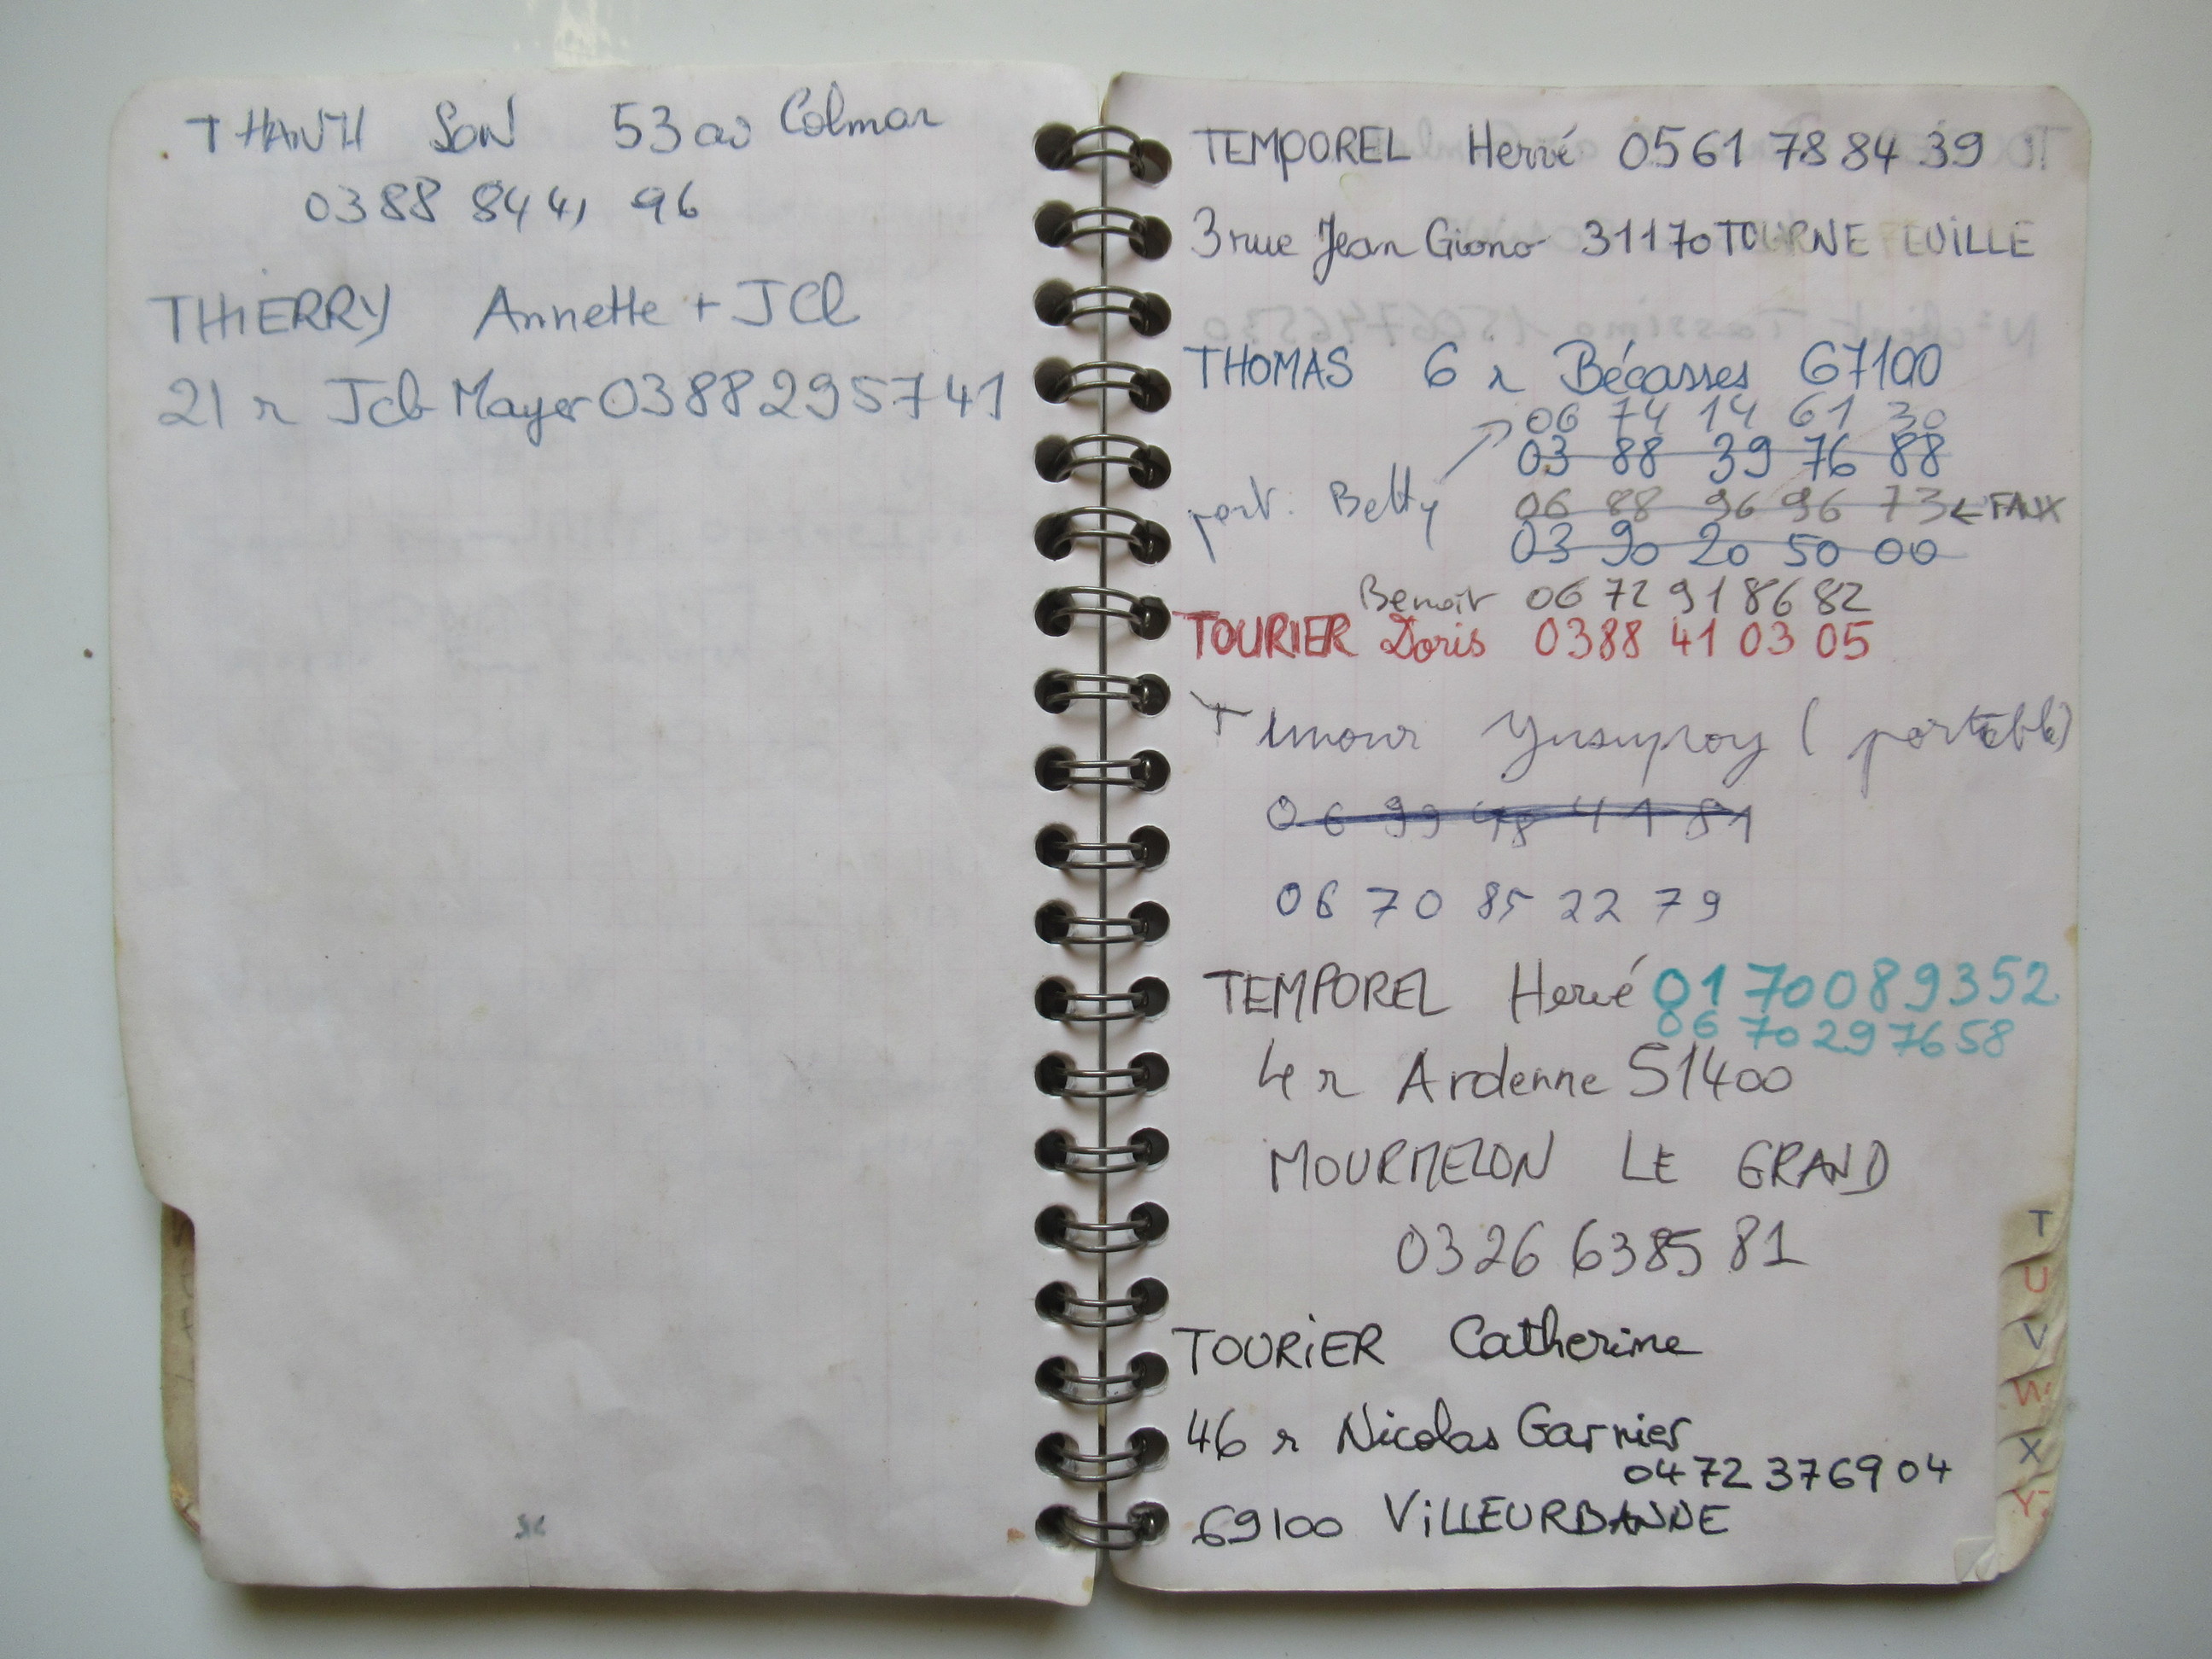 THANH SON 53 av Colmar
0388 84 41 96
THIERRY Annette + JCl
21 r Jcb Mayer 0388295741
TEMPOREL Hervé 0561 78 84 39
3 rue Jean Giono 31170 TOURNEFEUILLE
THOMAS 6 r Bécasses 67100
06 74 14 61 30
03 88 39 76 88
port. Betty 06 88 96 96 73 ← FAUX
03 90 20 50 00
Benoît 06 72 91 86 82
TOURIER Doris 0388 41 03 05
Timour (portable)
06 99 48 41 81
06 70 85 22 79
TEMPOREL Hervé 0170089352
06 70297658
4 r Ardenne 51400
MOURMELON LE GRAND
0326 638581
TOURIER Catherine
46 r Nicolas Garnier
0472 37 69 04
69100 VILLEURBANNE
T
U
V
W
X
Y